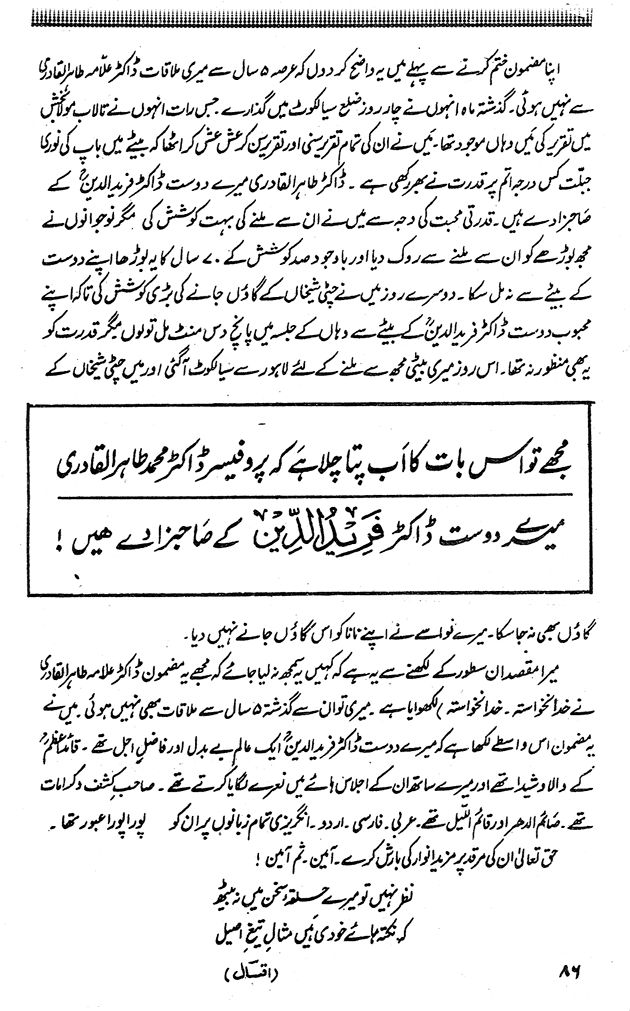 اپنا مضمون ختم کرنے سے پہلے میں یہ واضح کر دوں کہ عرصہ ۵ سال سے میری ملاقات ڈاکٹر علامہ طاہر القادری
سے نہیں ہوئی۔ گذشتہ ماہ انہوں نے چار روز ضلع سیالکوٹ میں گذارے۔ جس رات انہوں نے تالاب مولا بخش
میں تقریر کی مَیں وہاں موجود تھا۔ مَیں نے ان کی تمام تقریر سنی اور تقریر سن کر عش عش کر اٹھا کہ بیٹے میں باپ کی نوری
جبلّت کس درجہ اتم پر قدرت نے بھر رکھی ہے۔ ڈاکٹر طاہر القادری میرے دوست ڈاکٹر فرید الدینؒ کے
صاحبزادے ہیں۔ قدرتی محبت کی وجہ سے میں نے ان سے ملنے کی بہت کوشش کی مگر نوجوانوں نے
مجھ بوڑھے کو ان سے ملنے سے روک دیا اور باوجود صد کوشش کے ۷۰ سال کا یہ بوڑھا اپنے دوست
کے بیٹے سے نہ مل سکا۔ دوسرے روز میں نے چٹی شیخاں کے گاؤں جانے کی بڑی کوشش کی تاکہ اپنے
محبوب دوست ڈاکٹر فرید الدینؒ کے بیٹے سے وہاں کے جلسہ میں پانچ دس منٹ مل تو لوں۔ مگر قدرت کو
یہ بھی منظور نہ تھا۔ اس روز میری بیٹی مجھ سے ملنے کے لئے لاہور سے سیالکوٹ آ گئی اور میں چٹی شیخاں کے
مجھے تو اس بات کا اَب پتا چلا ہے کہ پروفیسر ڈاکٹر محمد طاہر القادری
میرے دوست ڈاکٹر فَرِیدُ الدِّیْن کے صاحبزادے ھیں!
گاؤں بھی نہ جا سکا۔ میرے نواسے نے اپنے نانا کو اس گاؤں جانے نہیں دیا۔
میرا مقصد ان سطور کے لکھنے سے یہ ہے کہ کہیں یہ سمجھ نہ لیا جائے کہ مجھے یہ مضمون ڈاکٹر علامہ طاہر القادری
نے خدانخواستہ۔ خدانخواستہ) لکھوایا ہے۔ میری تو ان سے گذشتہ ۵ سال سے ملاقات بھی نہیں ہوئی۔ مَیں نے
یہ مضمون اس واسطے لکھا ہے کہ میرے دوست ڈاکٹر فرید الدینؒ ایک عالمِ بے بدل اور فاضلِ اجل تھے۔ قائداعظمؒ
کے والا و شیدا تھے اور میرے ساتھ ان کے اجلاس ہائے میں نعرے لگایا کرتے تھے۔ صاحبِ کشف و کرامات
تھے۔ صائم الدھر اور قائم اللیل تھے۔ عربی۔ فارسی۔ اردو۔ انگریزی تمام زبانوں پر ان کو پورا پورا عبور تھا۔
حق تعالیٰ ان کی مرقد پر مزید انوار کی بارش کرے۔ آمین۔ ثم آمین!
نظر نہیں تو میرے حلقۂ سخن میں نہ بیٹھ
کہ نکتہ ہائے خودی ہیں مثالِ تیغِ اصیل
(اقبال)
۸۶